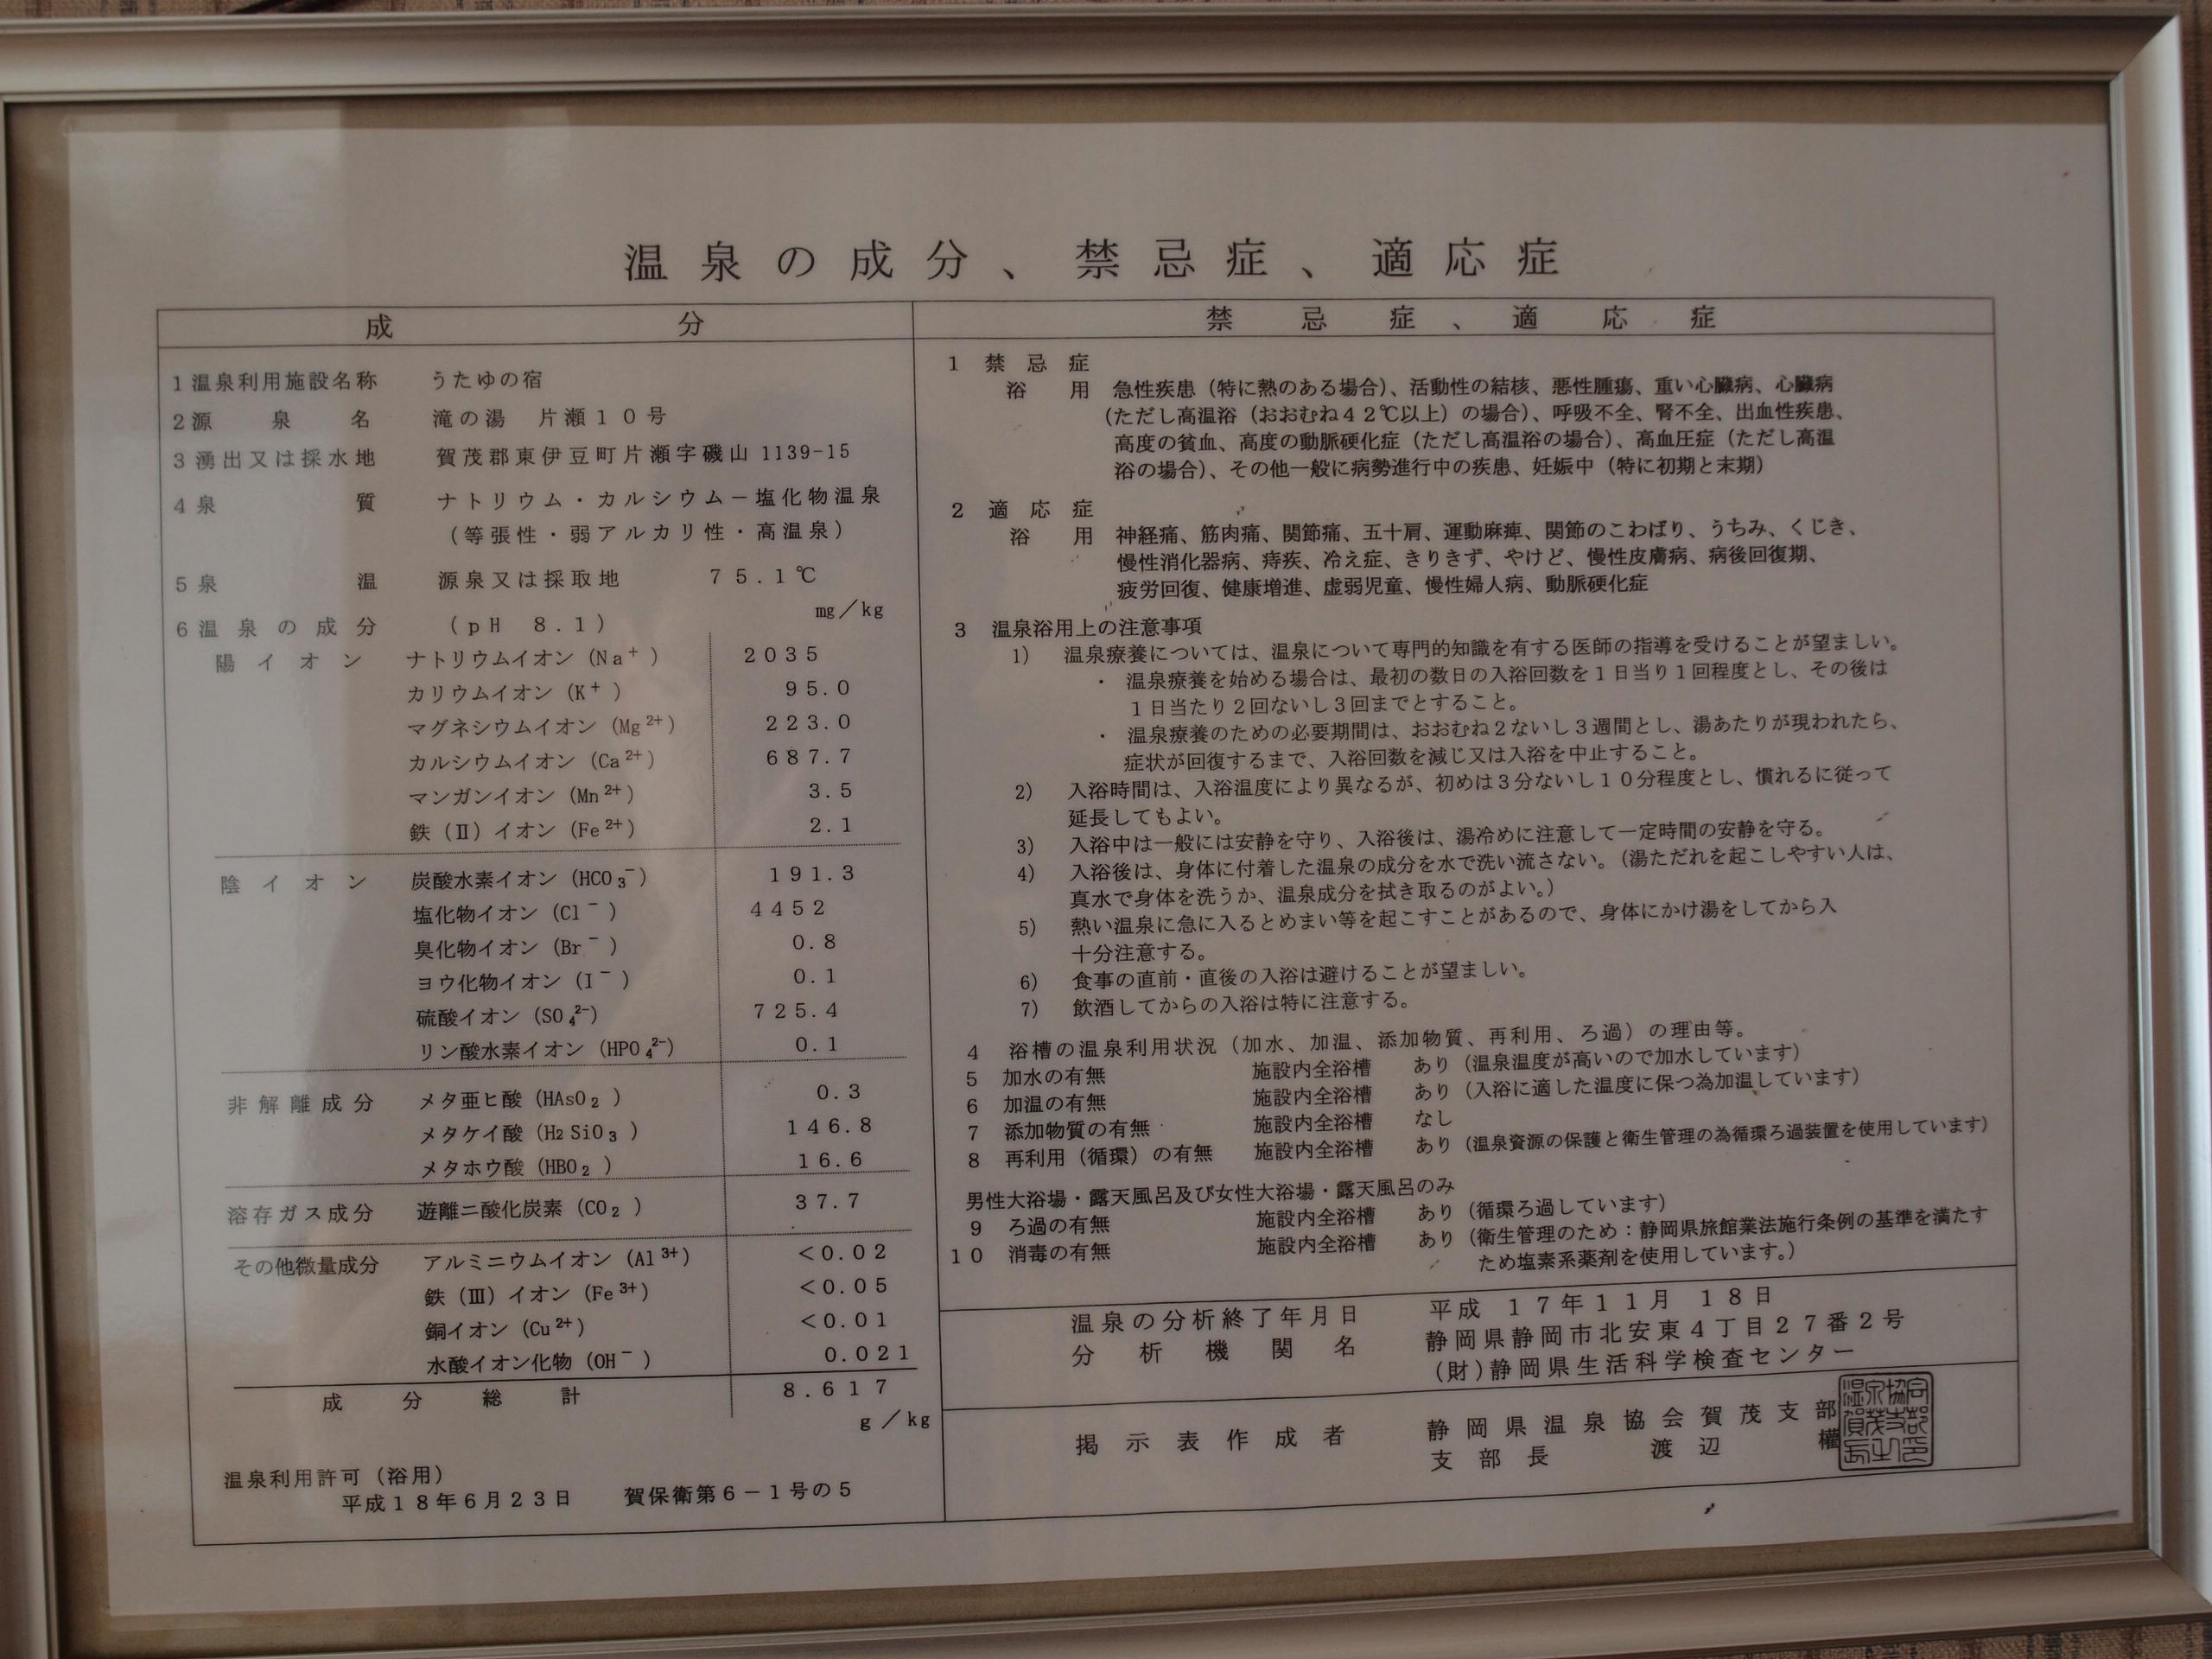 温泉の成分、禁忌症、適応症
成分
1温泉利用施設名称 うたゆの宿
2源泉名 滝の湯 片瀬10号
3湧出又は採水地 賀茂郡東伊豆町片瀬字磯山 1139-15
4泉質 ナトリウム・カルシウム－塩化物温泉
(等張性・弱アルカリ性・高温泉)
5泉温 源泉又は採取地 75.1℃
mg/kg
6温泉の成分 (pH 8.1)
陽イオン ナトリウムイオン (Na+) 2035
カリウムイオン (K+) 95.0
マグネシウムイオン (Mg2+) 223.0
カルシウムイオン (Ca2+) 687.7
マンガンイオン (Mn2+) 3.5
鉄(Ⅱ)イオン (Fe2+) 2.1
陰イオン 炭酸水素イオン (HCO3-) 191.3
塩化物イオン (Cl-) 4452
臭化物イオン (Br-) 0.8
ヨウ化物イオン (I-) 0.1
硫酸イオン (SO42-) 725.4
リン酸水素イオン (HPO42-) 0.1
非解離成分 メタ亜ヒ酸 (HAsO2) 0.3
メタケイ酸 (H2SiO3) 146.8
メタホウ酸 (HBO2) 16.6
溶存ガス成分 遊離ニ酸化炭素 (CO2) 37.7
その他微量成分 アルミニウムイオン (Al3+) <0.02
鉄(Ⅲ)イオン (Fe3+) <0.05
銅イオン (Cu2+) <0.01
水酸イオン化物 (OH-) 0.021
成分総計 8.617
g/kg
温泉利用許可(浴用)
平成18年6月23日 賀保衛第6－1号の5
禁忌症、適応症
1 禁忌症
浴用 急性疾患(特に熱のある場合)、活動性の結核、悪性腫瘍、重い心臓病、心臓病
(ただし高温浴(おおむね42℃以上)の場合)、呼吸不全、腎不全、出血性疾患、
高度の貧血、高度の動脈硬化症(ただし高温浴の場合)、高血圧症(ただし高温
浴の場合)、その他一般に病勢進行中の疾患、妊娠中(特に初期と末期)
2 適応症
浴用 神経痛、筋肉痛、関節痛、五十肩、運動麻痺、関節のこわばり、うちみ、くじき、
慢性消化器病、痔疾、冷え症、きりきず、やけど、慢性皮膚病、病後回復期、
疲労回復、健康増進、虚弱児童、慢性婦人病、動脈硬化症
3 温泉浴用上の注意事項
1) 温泉療養については、温泉について専門的知識を有する医師の指導を受けることが望ましい。
・ 温泉療養を始める場合は、最初の数日の入浴回数を1日当り1回程度とし、その後は
1日当たり2回ないし3回までとすること。
・ 温泉療養のための必要期間は、おおむね2ないし3週間とし、湯あたりが現われたら、
症状が回復するまで、入浴回数を減じ又は入浴を中止すること。
2) 入浴時間は、入浴温度により異なるが、初めは3分ないし10分程度とし、慣れるに従って
延長してもよい。
3) 入浴中は一般には安静を守り、入浴後は、湯冷めに注意して一定時間の安静を守る。
4) 入浴後は、身体に付着した温泉の成分を水で洗い流さない。(湯ただれを起こしやすい人は、
真水で身体を洗うか、温泉成分を拭き取るのがよい。)
5) 熱い温泉に急に入るとめまい等を起こすことがあるので、身体にかけ湯をしてから入
十分注意する。
6) 食事の直前・直後の入浴は避けることが望ましい。
7) 飲酒してからの入浴は特に注意する。
4 浴槽の温泉利用状況(加水、加温、添加物質、再利用、ろ過)の理由等。
5 加水の有無 施設内全浴槽 あり(温泉温度が高いので加水しています)
6 加温の有無 施設内全浴槽 あり(入浴に適した温度に保つ為加温しています)
7 添加物質の有無 施設内全浴槽 なし
8 再利用(循環)の有無 施設内全浴槽 あり(温泉資源の保護と衛生管理の為循環ろ過装置を使用しています)
男性大浴場・露天風呂及び女性大浴場・露天風呂のみ
9 ろ過の有無 施設内全浴槽 あり(循環ろ過しています)
10 消毒の有無 施設内全浴槽 あり(衛生管理のため：静岡県旅館業法施行条例の基準を満たす
ため塩素系薬剤を使用しています。)
温泉の分析終了年月日 平成 17年11月 18日
分析機関名 静岡県静岡市北安東4丁目27番2号
(財)静岡県生活科学検査センター
掲示表作成者 静岡県温泉協会賀茂支部
支部長 渡辺 權